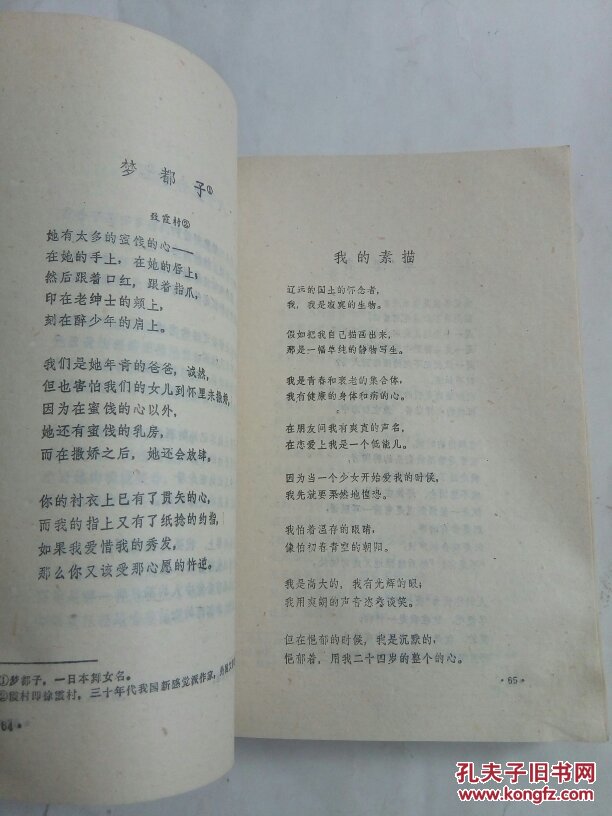 梦都子①
致霞村②
她有太多的蜜饯的心——
在她的手上，在她的唇上；
然后跟着口红，跟着指爪，
印在老绅士的颊上，
刻在醉少年的肩上。
我们是她年青的爸爸，诚然，
但也害怕我们的女儿到怀里来撒娇，
因为在蜜饯的心以外，
她还有蜜饯的乳房，
而在撒娇之后，她还会放肆。
你的衬衣上已有了贯矢的心，
而我的指上又有了纸捻的约指，
如果我爱惜我的秀发，
那么你又该受那心愿的忤逆。
①梦都子，一日本舞女名。
②霞村即徐霞村，三十年代我国新感觉派作家，
64·
我的素描
辽远的国土的怀念者，
我，我是寂寞的生物。
假如把我自己描画出来，
那是一幅单纯的静物写生。
我是青春和衰老的集合体，
我有健康的身体和病的心。
在朋友间我有爽直的声名，
在恋爱上我是一个低能儿。
因为当一个少女开始爱我的时候，
我先就要栗然地惶恐。
我怕着温存的眼睛，
像怕初春青空的朝阳。
我是高大的，我有光辉的眼；
我用爽朗的声音恣意谈笑。
但在悒郁的时候，我是沉默的，
悒郁着，用我二十四岁的整个的心。
·65·
孔夫子旧书网
www.kongfz.com